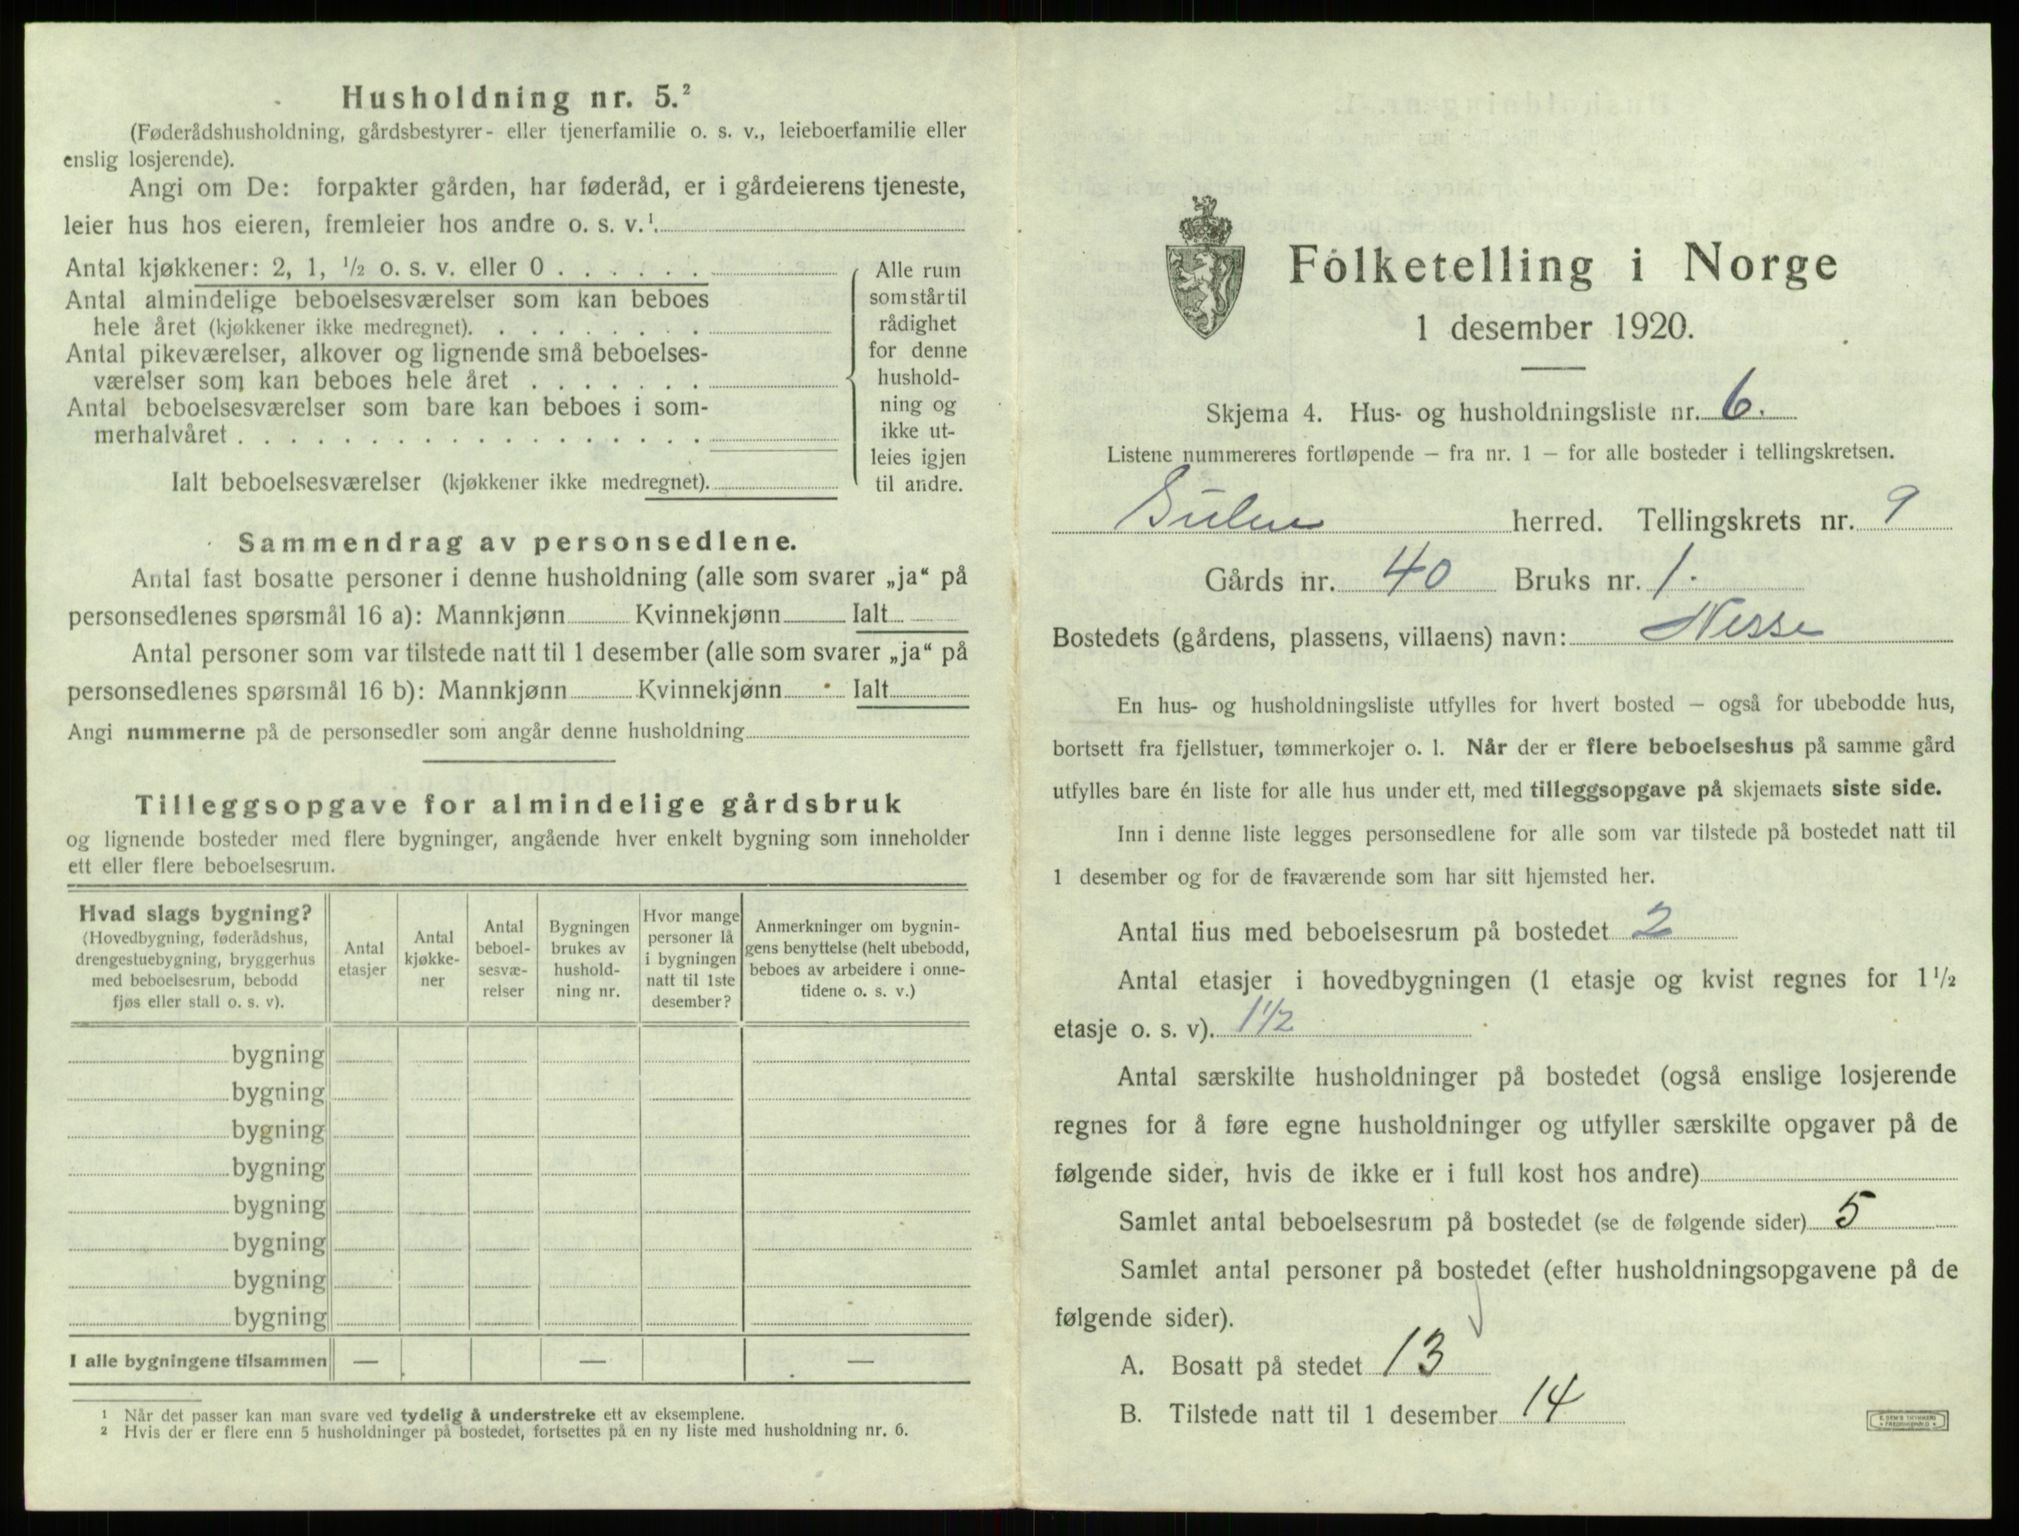 Husholdning nr. 5.²
(Føderådshusholdning, gårdsbestyrer- eller tjenerfamilie o. s. v., leieboerfamilie eller
enslig losjerende).
Angi om De: forpakter gården, har føderåd, er i gårdeierens tjeneste,
leier hus hos eieren, fremleier hos andre o. s. v.¹.
Antal kjøkkener: 2, 1, ½ o. s. v. eller 0 . . . . . .
Antal almindelige beboelsesværelser som kan beboes
hele året (kjøkkener ikke medregnet). . . . . . . . . .
Antal pikeværelser, alkover og lignende små beboelses-
værelser som kan beboes hele året . . . . . . .
Antal beboelsesværelser som bare kan beboes i som-
merhalvåret . . . . . . . . . . . . . . . . . .
Ialt beboelsesværelser (kjøkkener ikke medregnet).
Alle rum
som står til
rådighet
for denne
hushold-
ning og
ikke ut-
leies igjen
til andre.
Sammendrag av personsedlene.
Antal fast bosatte personer i denne husholdning (alle som svarer „ja“ på
personsedlenes spørsmål 16 a): Mannkjønn Kvinnekjønn Ialt
Antal personer som var tilstede natt til 1 desember (alle som svarer „ja“ på
personsedlenes spørsmål 16 b): Mannkjønn Kvinnekjønn Ialt
Angi nummerne på de personsedler som angår denne husholdning
Tilleggsopgave for almindelige gårdsbruk
og lignende bosteder med flere bygninger, angående hver enkelt bygning som inneholder
ett eller flere beboelsesrum.
Hvad slags bygning?
(Hovedbygning, føderådshus,
drengestuebygning, bryggerhus
med beboelsesrum, bebodd
fjøs eller stall o. s. v).
Antal
etasjer
Antal
kjøkke-
ner
Antal
beboel-
sesvæ-
relser
Bygningen
brukes av
hushold-
ning nr.
Hvor mange
personer lå
i bygningen
natt til 1ste
desember?
Anmerkninger om bygnin-
gens benyttelse (helt ubebodd,
beboes av arbeidere i onne-
tidene o. s. v.)
bygning
bygning
bygning
bygning
bygning
bygning
bygning
bygning
I alle bygningene tilsammen — — —
¹ Når det passer kan man svare ved tydelig å understreke ett av eksemplene.
² Hvis der er flere enn 5 husholdninger på bostedet, fortsettes på en ny liste med husholdning nr. 6.
Folketelling i Norge
1 desember 1920.
Skjema 4. Hus- og husholdningsliste nr. 6.
Listene nummereres fortløpende — fra nr. 1 — for alle bosteder i tellingskretsen.
Gulen herred. Tellingskrets nr. 9
Gårds nr. 40 Bruks nr. 1.
Bostedets (gårdens, plassens, villaens) navn: Nesse
En hus- og husholdningsliste utfylles for hvert bosted — også for ubebodde hus,
bortsett fra fjellstuer, tømmerkojer o. l. Når der er flere beboelseshus på samme gård
utfylles bare én liste for alle hus under ett, med tilleggsopgave på skjemaets siste side.
Inn i denne liste legges personsedlene for alle som var tilstede på bostedet natt til
1 desember og for de fraværende som har sitt hjemsted her.
Antal hus med beboelsesrum på bostedet 2
Antal etasjer i hovedbygningen (1 etasje og kvist regnes for 1½
etasje o. s. v). 1½
Antal særskilte husholdninger på bostedet (også enslige losjerende
regnes for å føre egne husholdninger og utfyller særskilte opgaver på de
følgende sider, hvis de ikke er i full kost hos andre)
Samlet antal beboelsesrum på bostedet (se de følgende sider) 5
Samlet antal personer på bostedet (efter husholdningsopgavene på de
følgende sider).
A. Bosatt på stedet 13
B. Tilstede natt til 1 desember 14